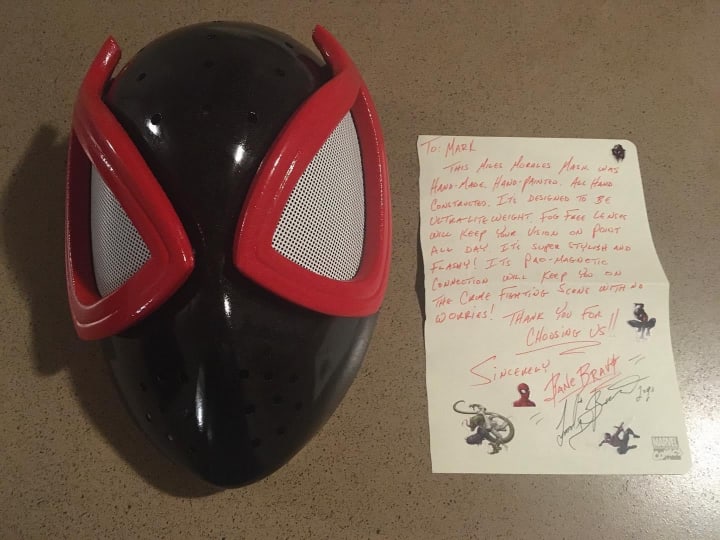 To: Mark
This Miles Morales Mask was
Hand-Made. Hand-Painted. All Hand
Constructed. It's designed to be
ultra-liteweight. Fog free lenses
will keep your vision on point
all day. It's super stylish and
flashy! It's Pro-Magnetic
connection will keep you on
the crime fighting scene with no
worries! Thank you for
choosing us!!
Sincerely
MARVEL
COMICS